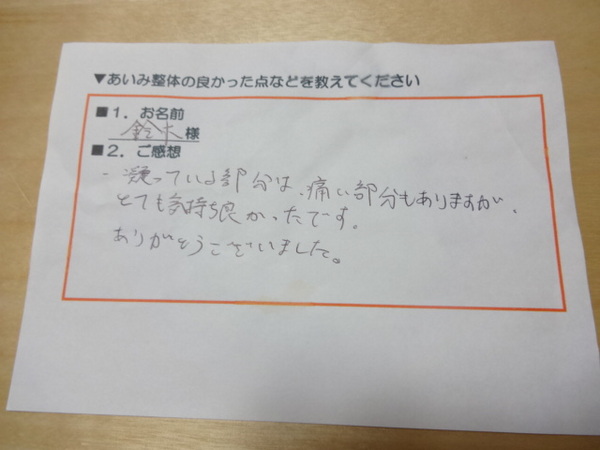 ▼あいみ整体の良かった点などを教えてください
■1．お名前
鈴木様
■2．ご感想
・凝っている部分は、痛い部分もありますが、
とても気持ち良かったです。
ありがとうございました。